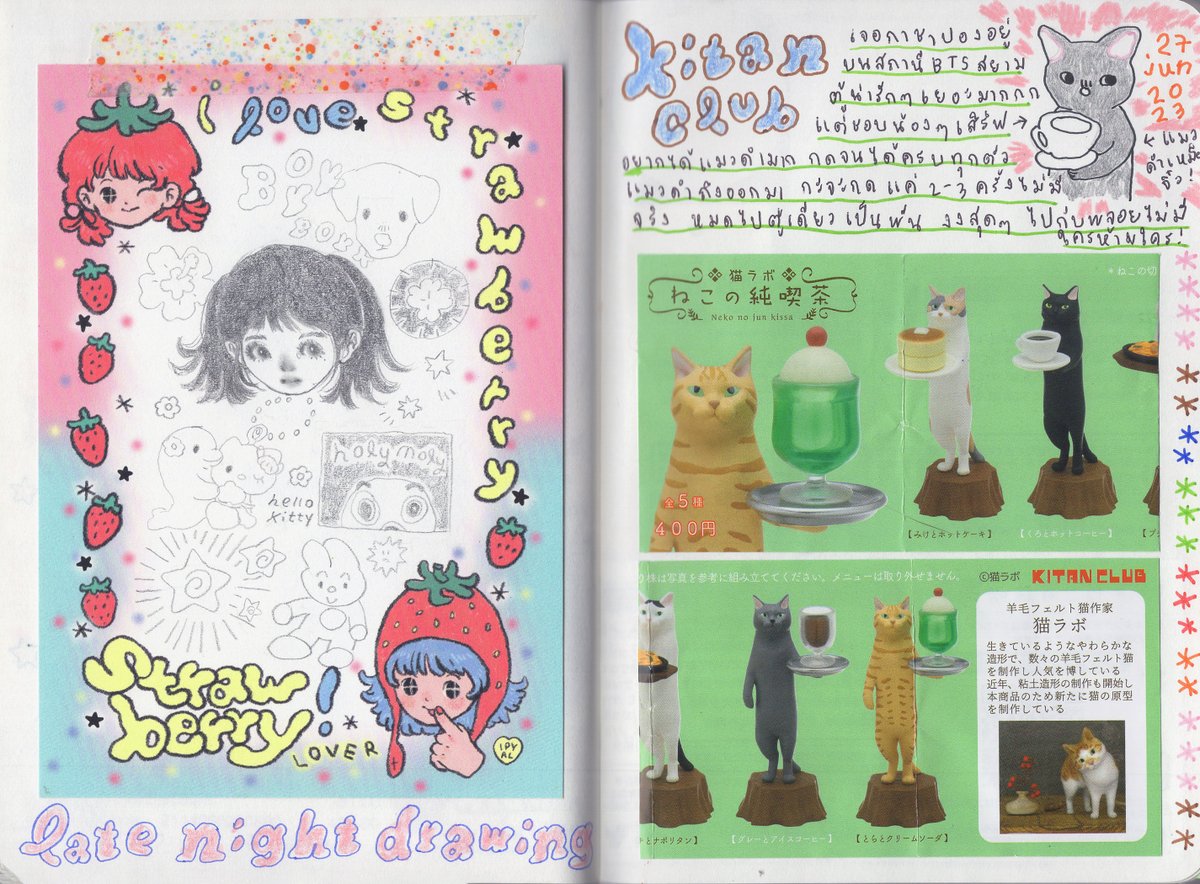 I love strawberry
BOK
BOK
BOK
hello
kitty
holy moly
strawberry!
LOVER
IPY
AL
late night drawing
kitan
club
เจอกาชาปองอยู่
บนสถานี BTS สยาม
ตู้น่ารักๆ เยอะมากกก
แต่ชอบน้องๆ เสิร์ฟ →
อยากได้แมวดำมาก กดจนได้ครบทุกตัว
แมวดำถึงออกมา กะจะกดแค่ 2-3 ครั้งไม่มี
จริง หมดไปตู้เดียวเป็นพัน งงสุดๆ ไปกับพลอยไม่มี
ใครห้ามใคร!
27
Jun
20
23
← แมว
จิ๋ว!
猫ラボ
ねこの純喫茶
Neko no jun kissa
*ねこの切
全5種
400円
【みけとホットケーキ】
【くろとホットコーヒー】
り株は写真を参考に組み立ててください。メニューは取り外せません。
©猫ラボ KITAN CLUB
羊毛フェルト猫作家
猫ラボ
生きているようなやわらかな
造形で、数々の羊毛フェルト猫
を制作し人気を博している
近年、粘土造形の制作も開始し
本商品のため新たに猫の原型
を制作している
チとナポリタン】
【グレーとアイスコーヒー】
【とらとクリームソーダ】